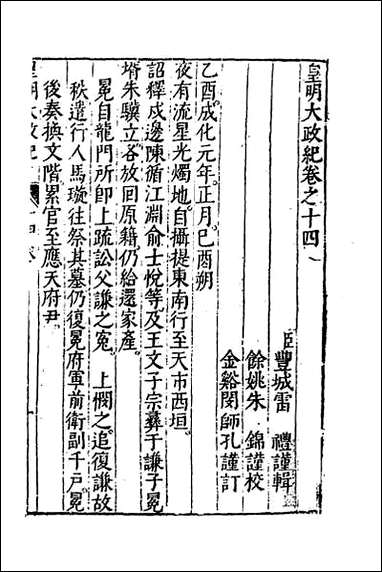 皇明大政紀卷之十四
臣豐城雷 禮謹輯
餘姚朱 錦謹校
金谿閔師孔謹訂
乙酉成化元年正月己酉朔
夜有流星光燭地自攝提東南行至天市西垣
詔釋戍邊陳循江淵俞士悅等及王文子宗彝于謙子冕
壻朱驥立各放回原籍仍給還家產
冕自龍門所即上疏訟父謙之寃 上憫之追復謙故
秩遣行人馬璇往祭其墓仍復冕府軍前衛副千戶冕
後奏換文階累官至應天府尹
皇明大政紀 十四